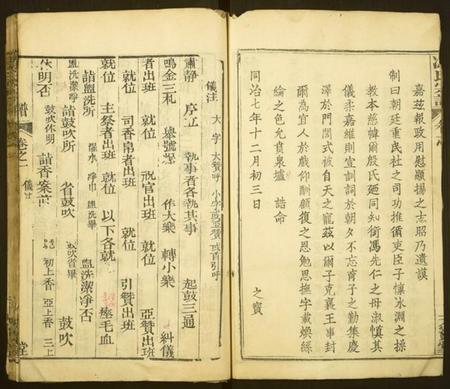 嘉茲報政用慰顯揚之志昭乃遺謨
制曰朝廷重民社之司功推循吏臣子懷冰淵之操
教本慈幃爾殷氏廼同知銜馮先仁之母淑慎其
儀柔嘉維則宣訓詞於朝夕不忘育子之勤集慶
澤於門閭式被自天之寵茲以爾子克襄王事封
爾為宜人於戲仰酬顧復之恩勉思撫字載煥絲
綸之色允賁泉壚　誥命
同治七年十二月初三日　之寶
儀注　大字大贊呼小字或亞贊或百引呼
肅靜　序立　執事者各執其事　起鼓三通
鳴金三札　舉號　作大樂　轉小樂　糾儀
者出班　就位　祝官出班　就位　亞贊出班
就位　司香帛者出班　就位　引贊出班
就位　主祭者出班　就位　以下各就位
請盥洗所　盥洗　瘞毛血
盥洗潔淨　請鼓吹所　盥洗潔淨否　省鼓吹
明否　鼓吹休明　請香案前　初上香　亞上香　三上　鼓吹
卷之一　儀注